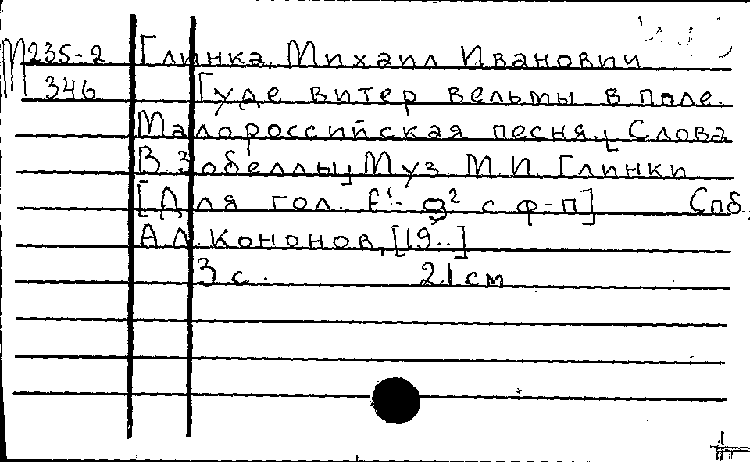 М 235-2 Глинка, Михаил Иванович
346 Гуде витер вельмы в поле.
Малороссийская песня. Слова
В. Забеллы, Муз. М.И. Глинки
[Для гол. f¹- g² с ф-п] Спб.,
А.Л. Кононов, [19..]
3 с. 21 см